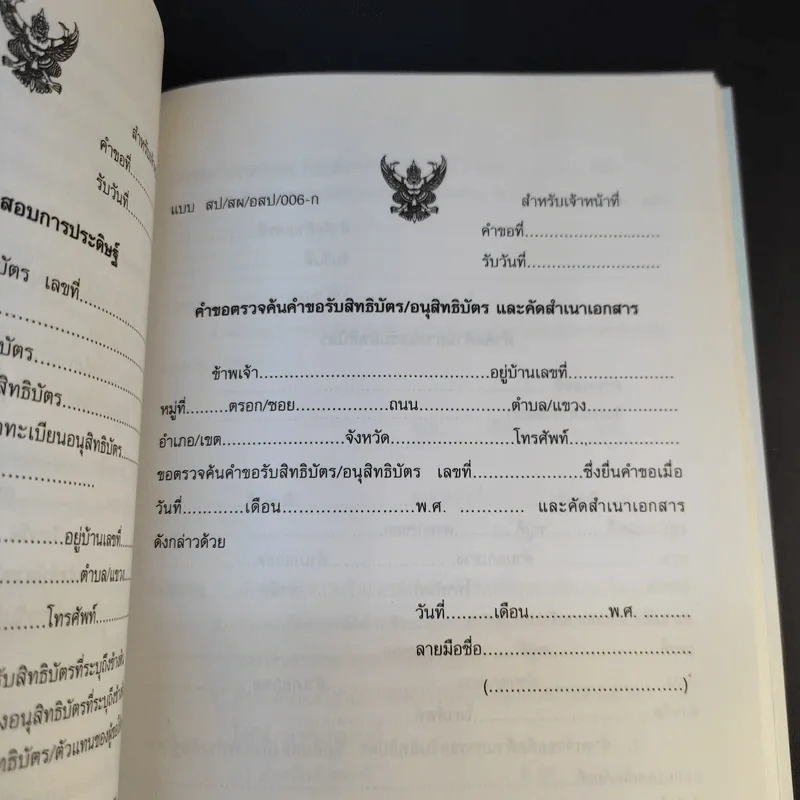 คำขอที่......
รับวันที่......
สอบการประดิษฐ์
เลขที่......
สิทธิบัตร......
ทะเบียนอนุสิทธิบัตร......
อยู่บ้านเลขที่......
ตำบล/แขวง......
โทรศัพท์......
รับสิทธิบัตรที่ระบุถึงข้าง
อนุสิทธิบัตรที่ระบุถึงข้าง
แบบ สป/สผ/อสป/006-ก
สำหรับเจ้าหน้าที่
คำขอที่..............................
รับวันที่..............................
คำขอตรวจค้นคำขอรับสิทธิบัตร/อนุสิทธิบัตร และคัดสำเนาเอกสาร
ข้าพเจ้า..................................................อยู่บ้านเลขที่........................
หมู่ที่.........ตรอก/ซอย....................ถนน....................ตำบล/แขวง....................
อำเภอ/เขต..........................จังหวัด..........................โทรศัพท์........................
ขอตรวจค้นคำขอรับสิทธิบัตร/อนุสิทธิบัตร เลขที่........................ซึ่งยื่นคำขอเมื่อ
วันที่.............เดือน.............................พ.ศ. ............. และคัดสำเนาเอกสาร
ดังกล่าวด้วย
วันที่..........เดือน................พ.ศ. ..........
ลายมือชื่อ..........................................
(..........................................)